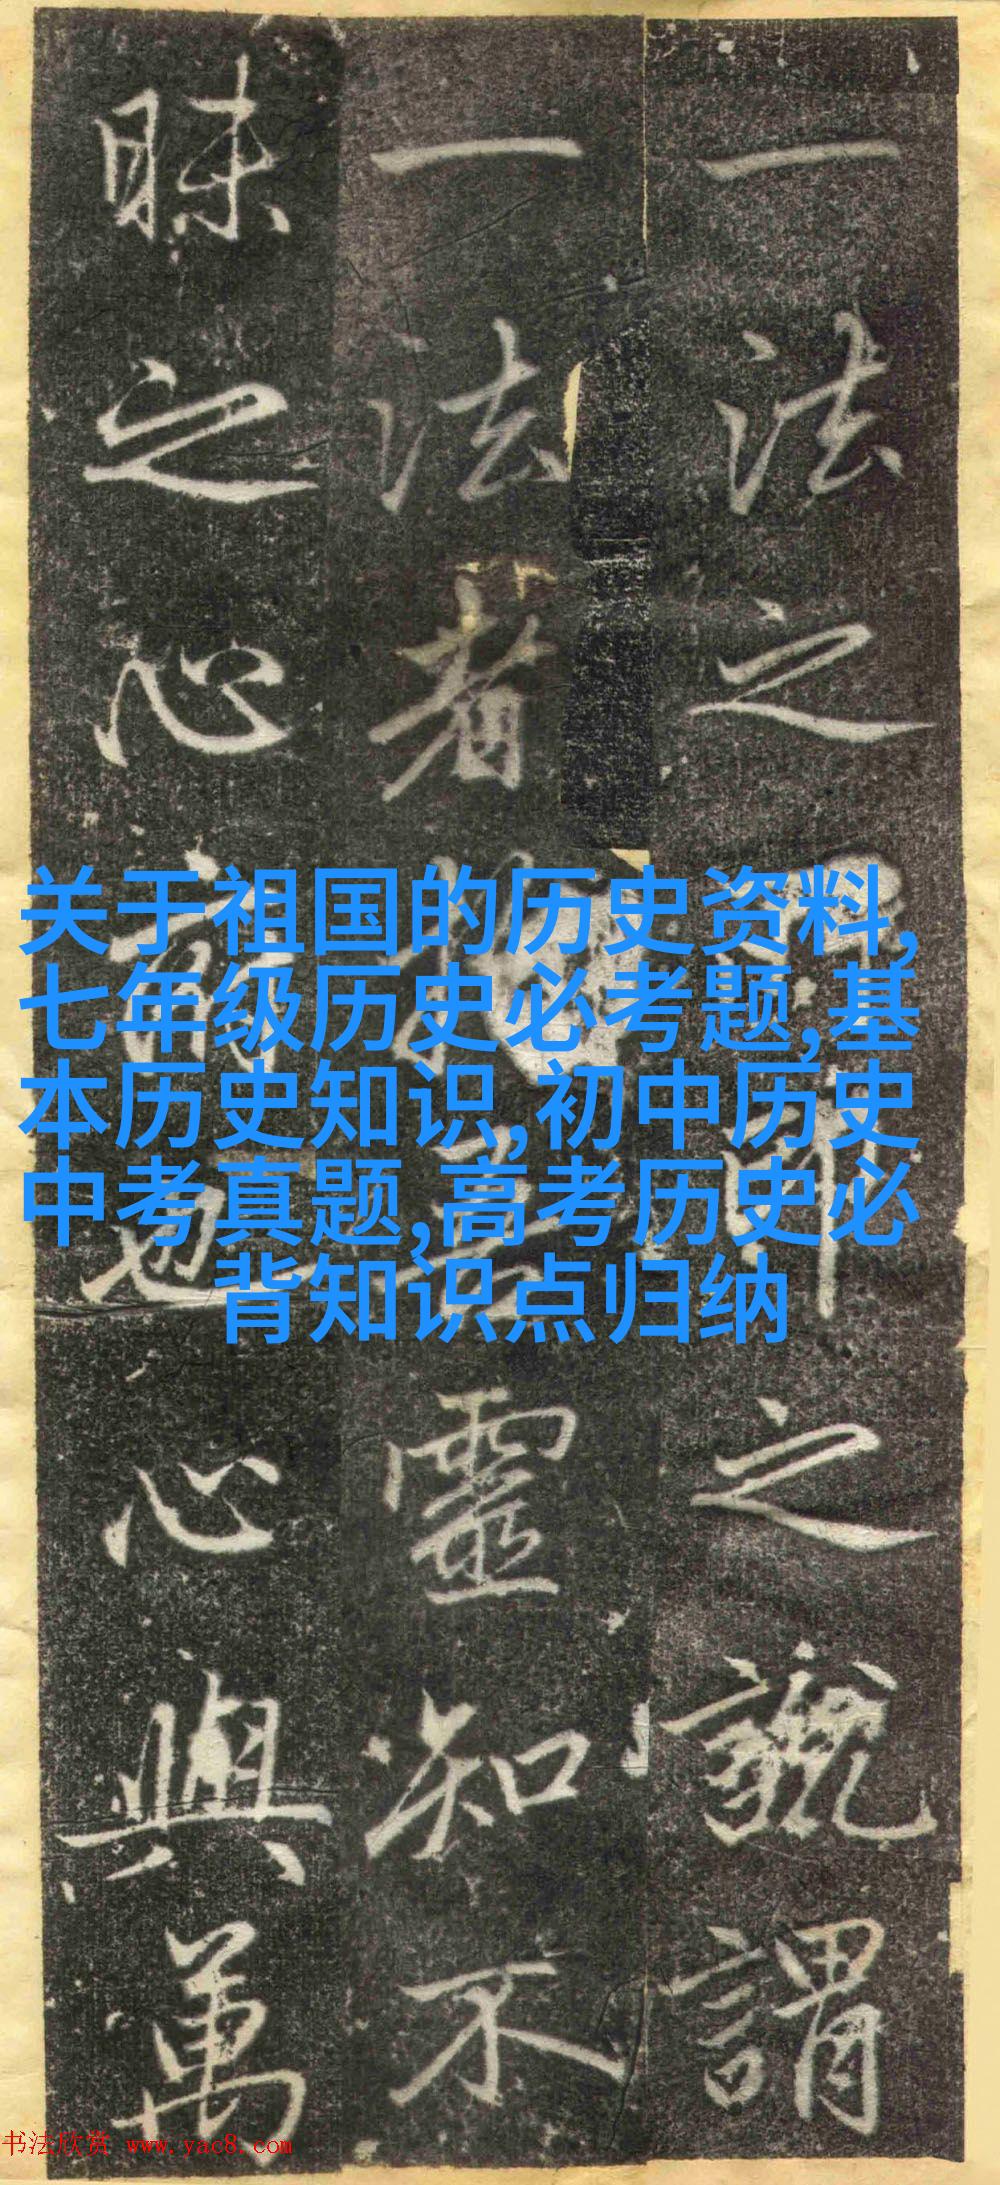 一法之之謂
一法者靈知不
昧之心也心與萬
关于祖国的历史资料,
七年级历史必考题,基
本历史知识,初中历史
中考真题,高考历史必
背知识点归纳
书法欣赏 www.yac8.com